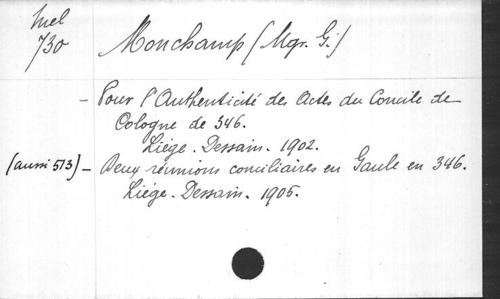 Mel
730
Monchamp (Mgr. G.)
- Pour l'Authenticité des Actes du Concile de
Cologne de 346.
Liége. Dessain. 1902.
(aussi 513) - Deux réunions conciliaires en Gaule en 346.
Liége. Dessain. 1905.